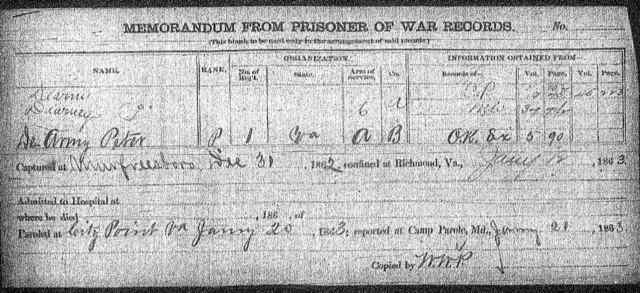 MEMORANDUM FROM PRISONER OF WAR RECORDS. No.
(This blank to be used only in the arrangement of said records.)
NAME. RANK. ORGANIZATION. INFORMATION OBTAINED FROM—
No. of Reg't. State. Arm of service. Co. Records of— Vol. Page. Vol. Page.
Dearney
De Army Peter P 1 A B O.K. Ex 5 90
Captured at Murfreesboro, Dec 31, 1862, confined at Richmond, Va., Jany 12, 1863.
Admitted to Hospital at
where he died, 186 , of
Paroled at City Point Va Jany 20, 1863; reported at Camp Parole, Md., Jany 21, 1863
Copied by